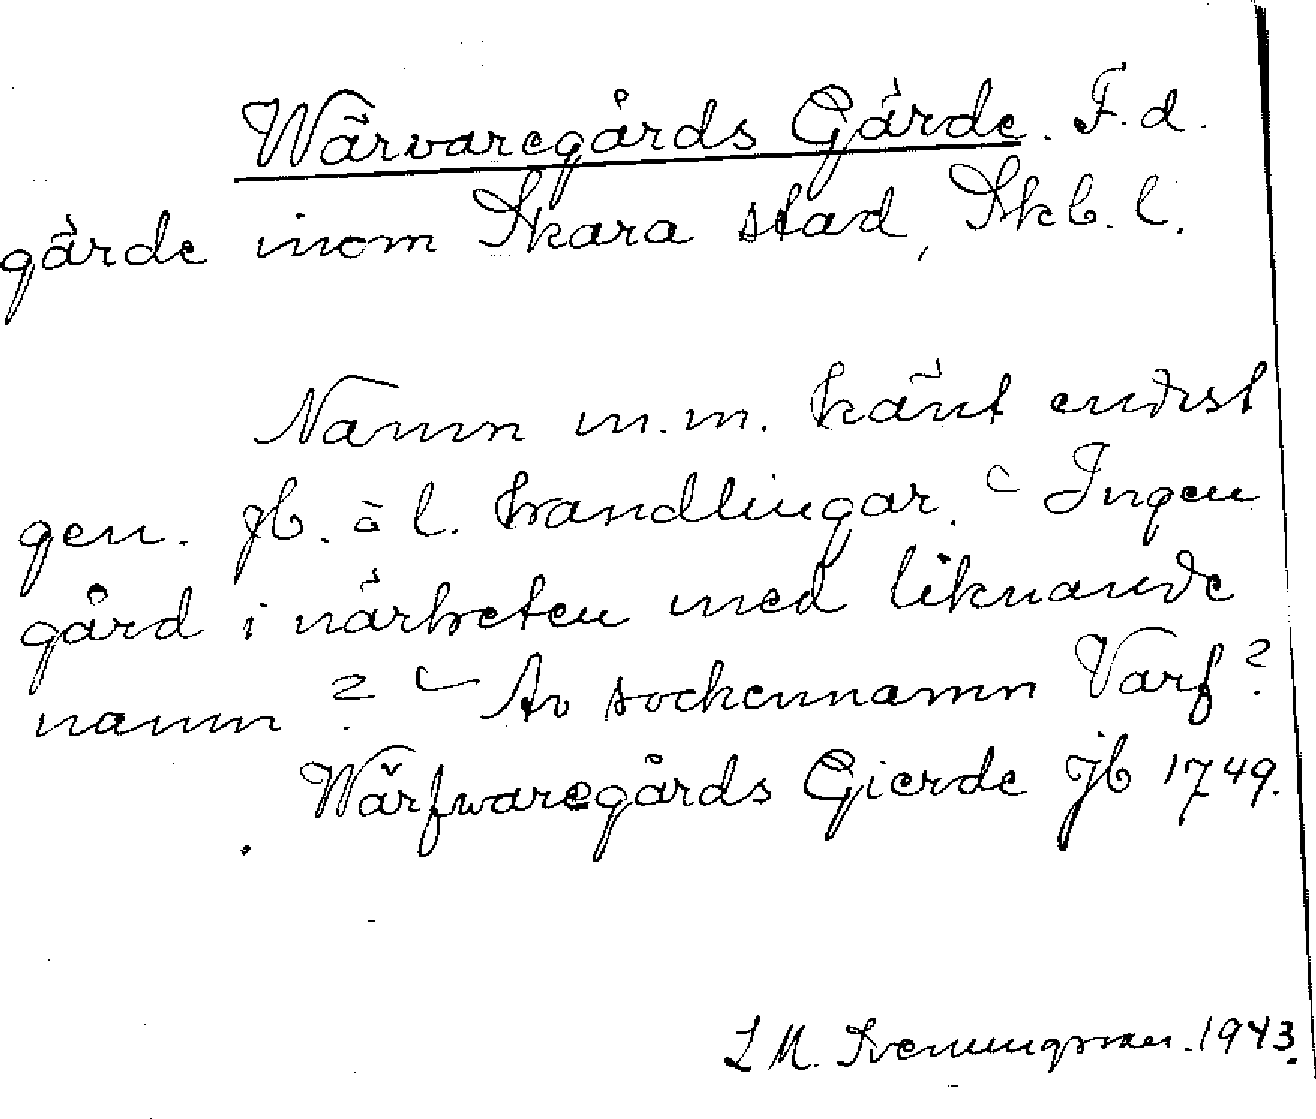 Wärvaregårds Gärde. F. d.
gärde inom Skara stad, Skb. l.
Namn m.m. känt endast
gen. jb. ä l. handlingar. – Ingen
gård i närheten med liknande
namn? – Av sockennamn Varf?
Wärfwaregårds Gierde jb 1749.
L M. Svenungsson. 1943.